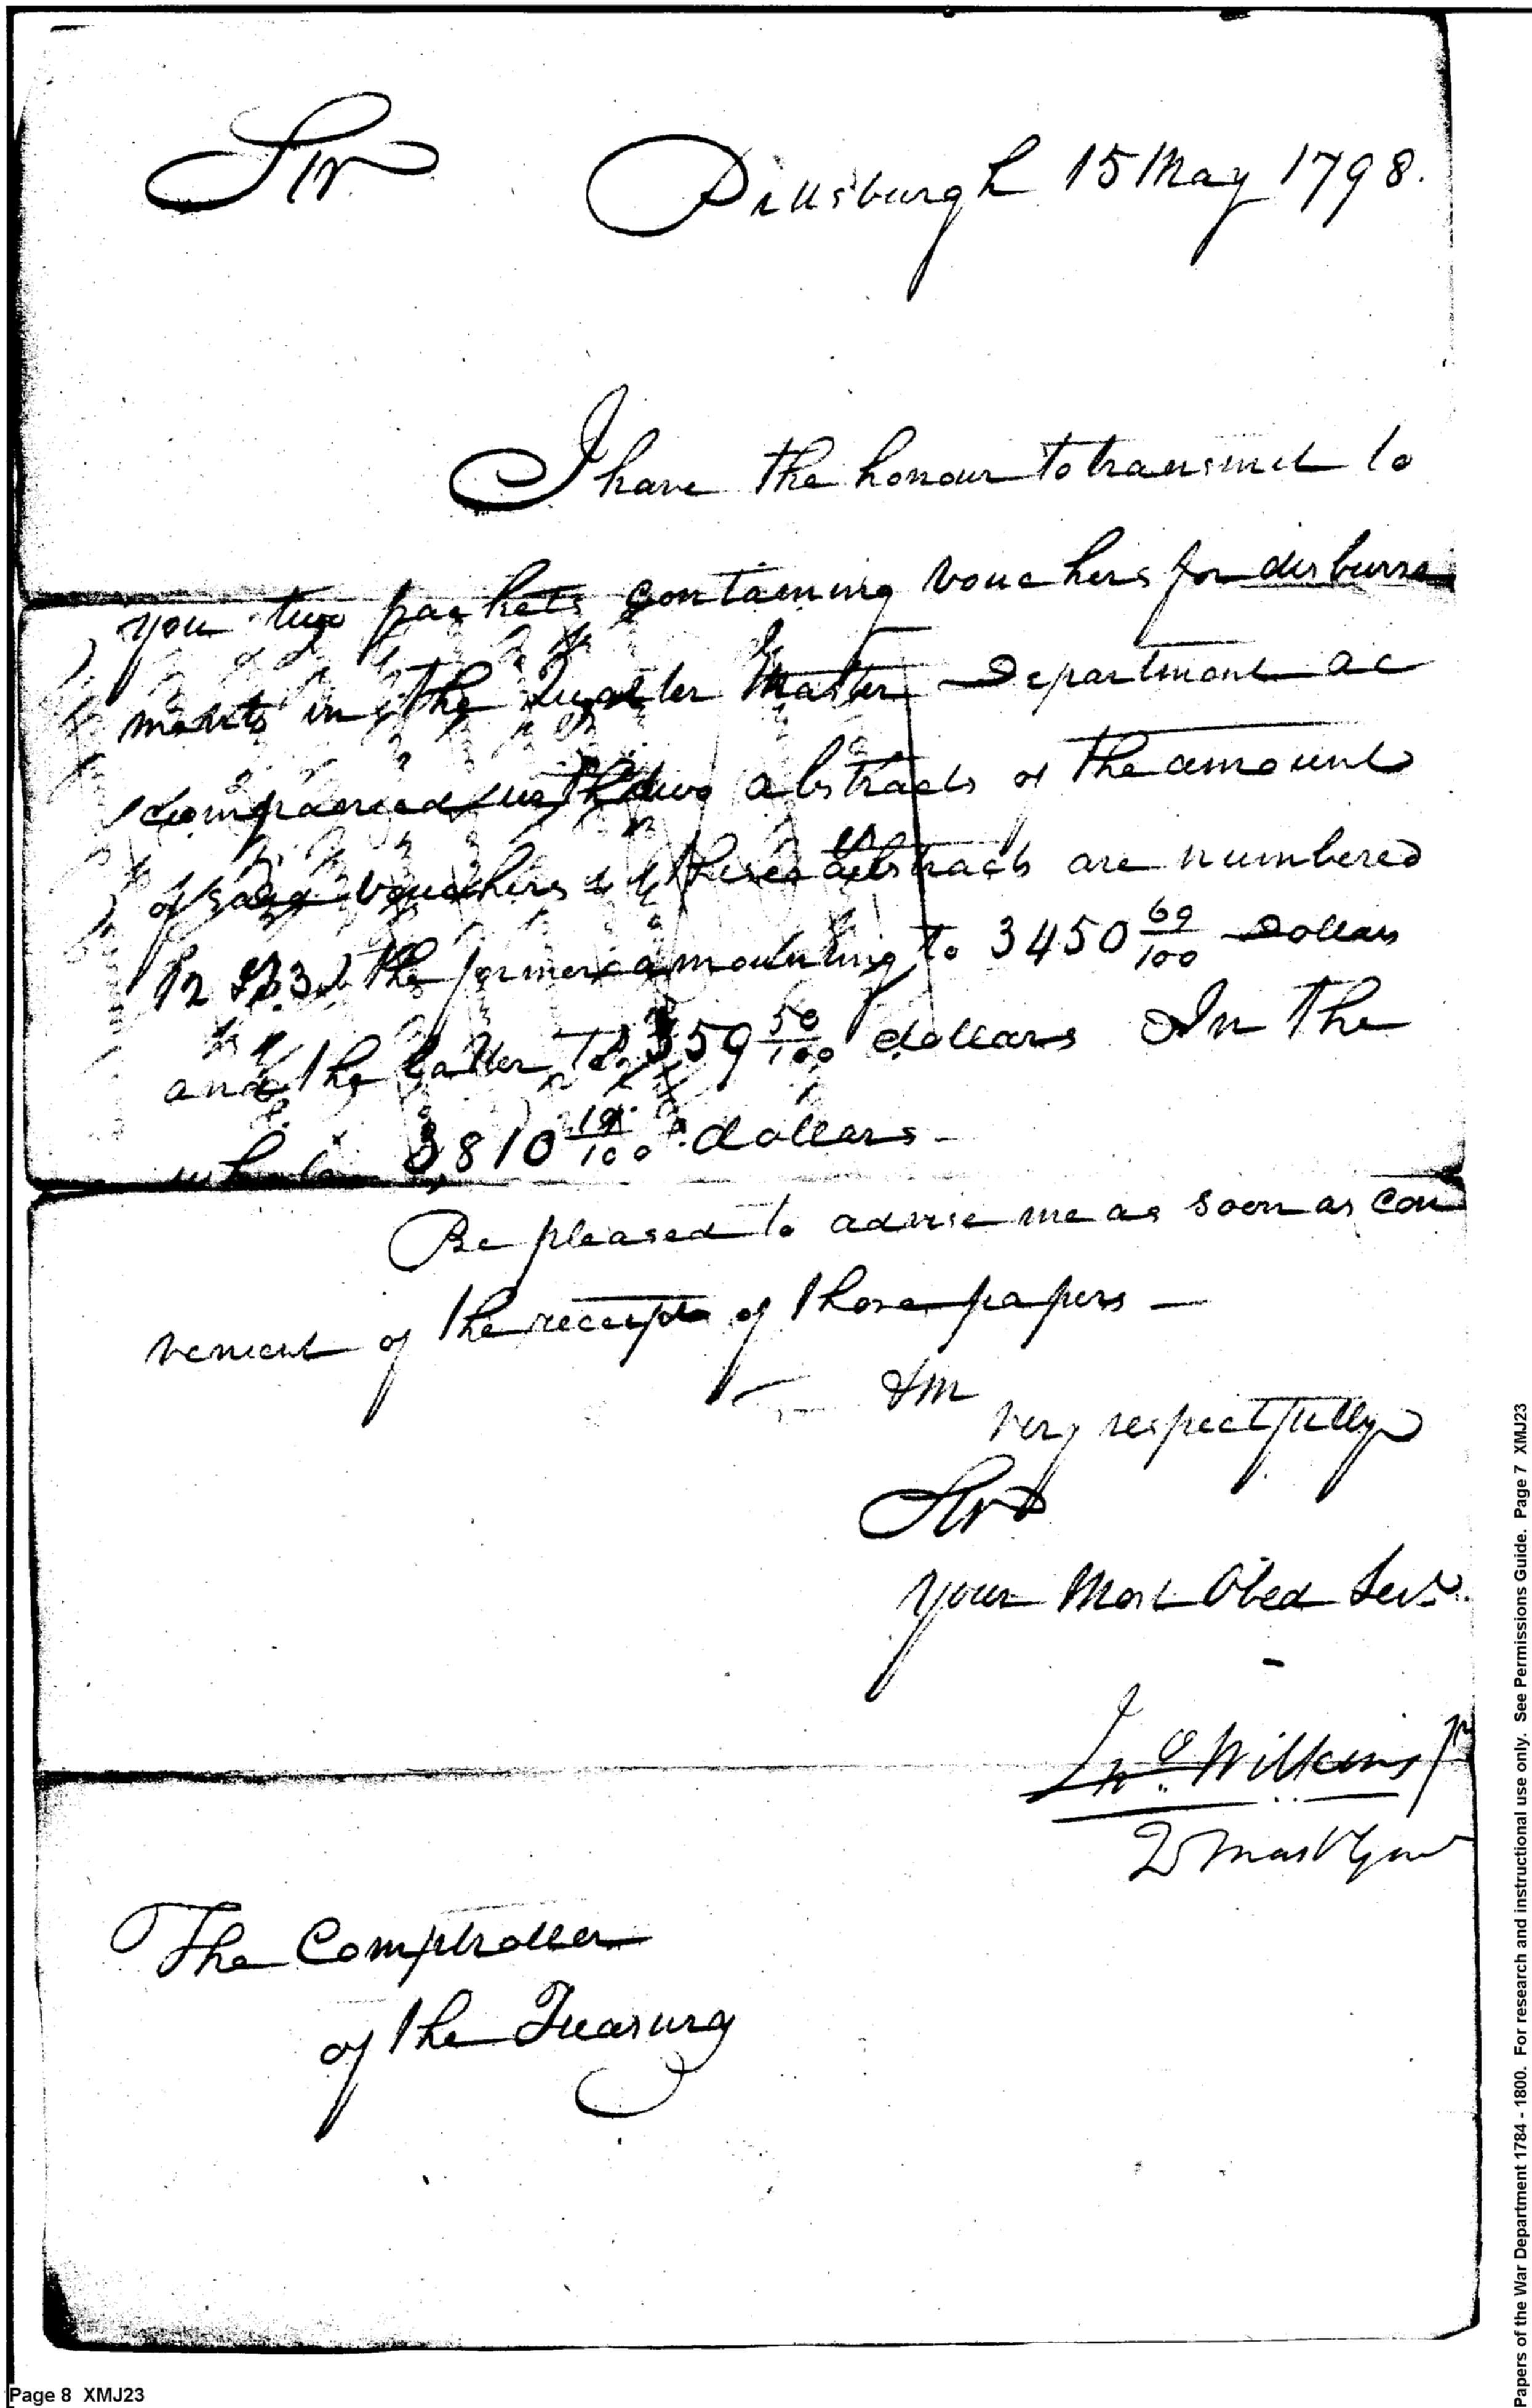 Sir Pittsburgh 15 May 1798.
I have the honour to transmit to
you two packets containing vouchers for disburse
ments in the Quarter Master Department ac
companied with two abstracts of the amount
of said vouchers these abstracts are numbered
the former amounting to 3450 69/100 Dollars
and the latter to 359 50/100 dollars In the
whole 3810 19/100 dollars
Be pleased to advise me as soon as con
venient of the receipt of those papers —
Am
very respectfully
Sir
your Most Obed Servt.
Jno Wilkins Jr
Q Mast Genl
The Comptroller
of the Treasury
Page 8 XMJ23
Papers of the War Department 1784 - 1800. For research and instructional use only. See Permissions Guide. Page 7 XMJ23